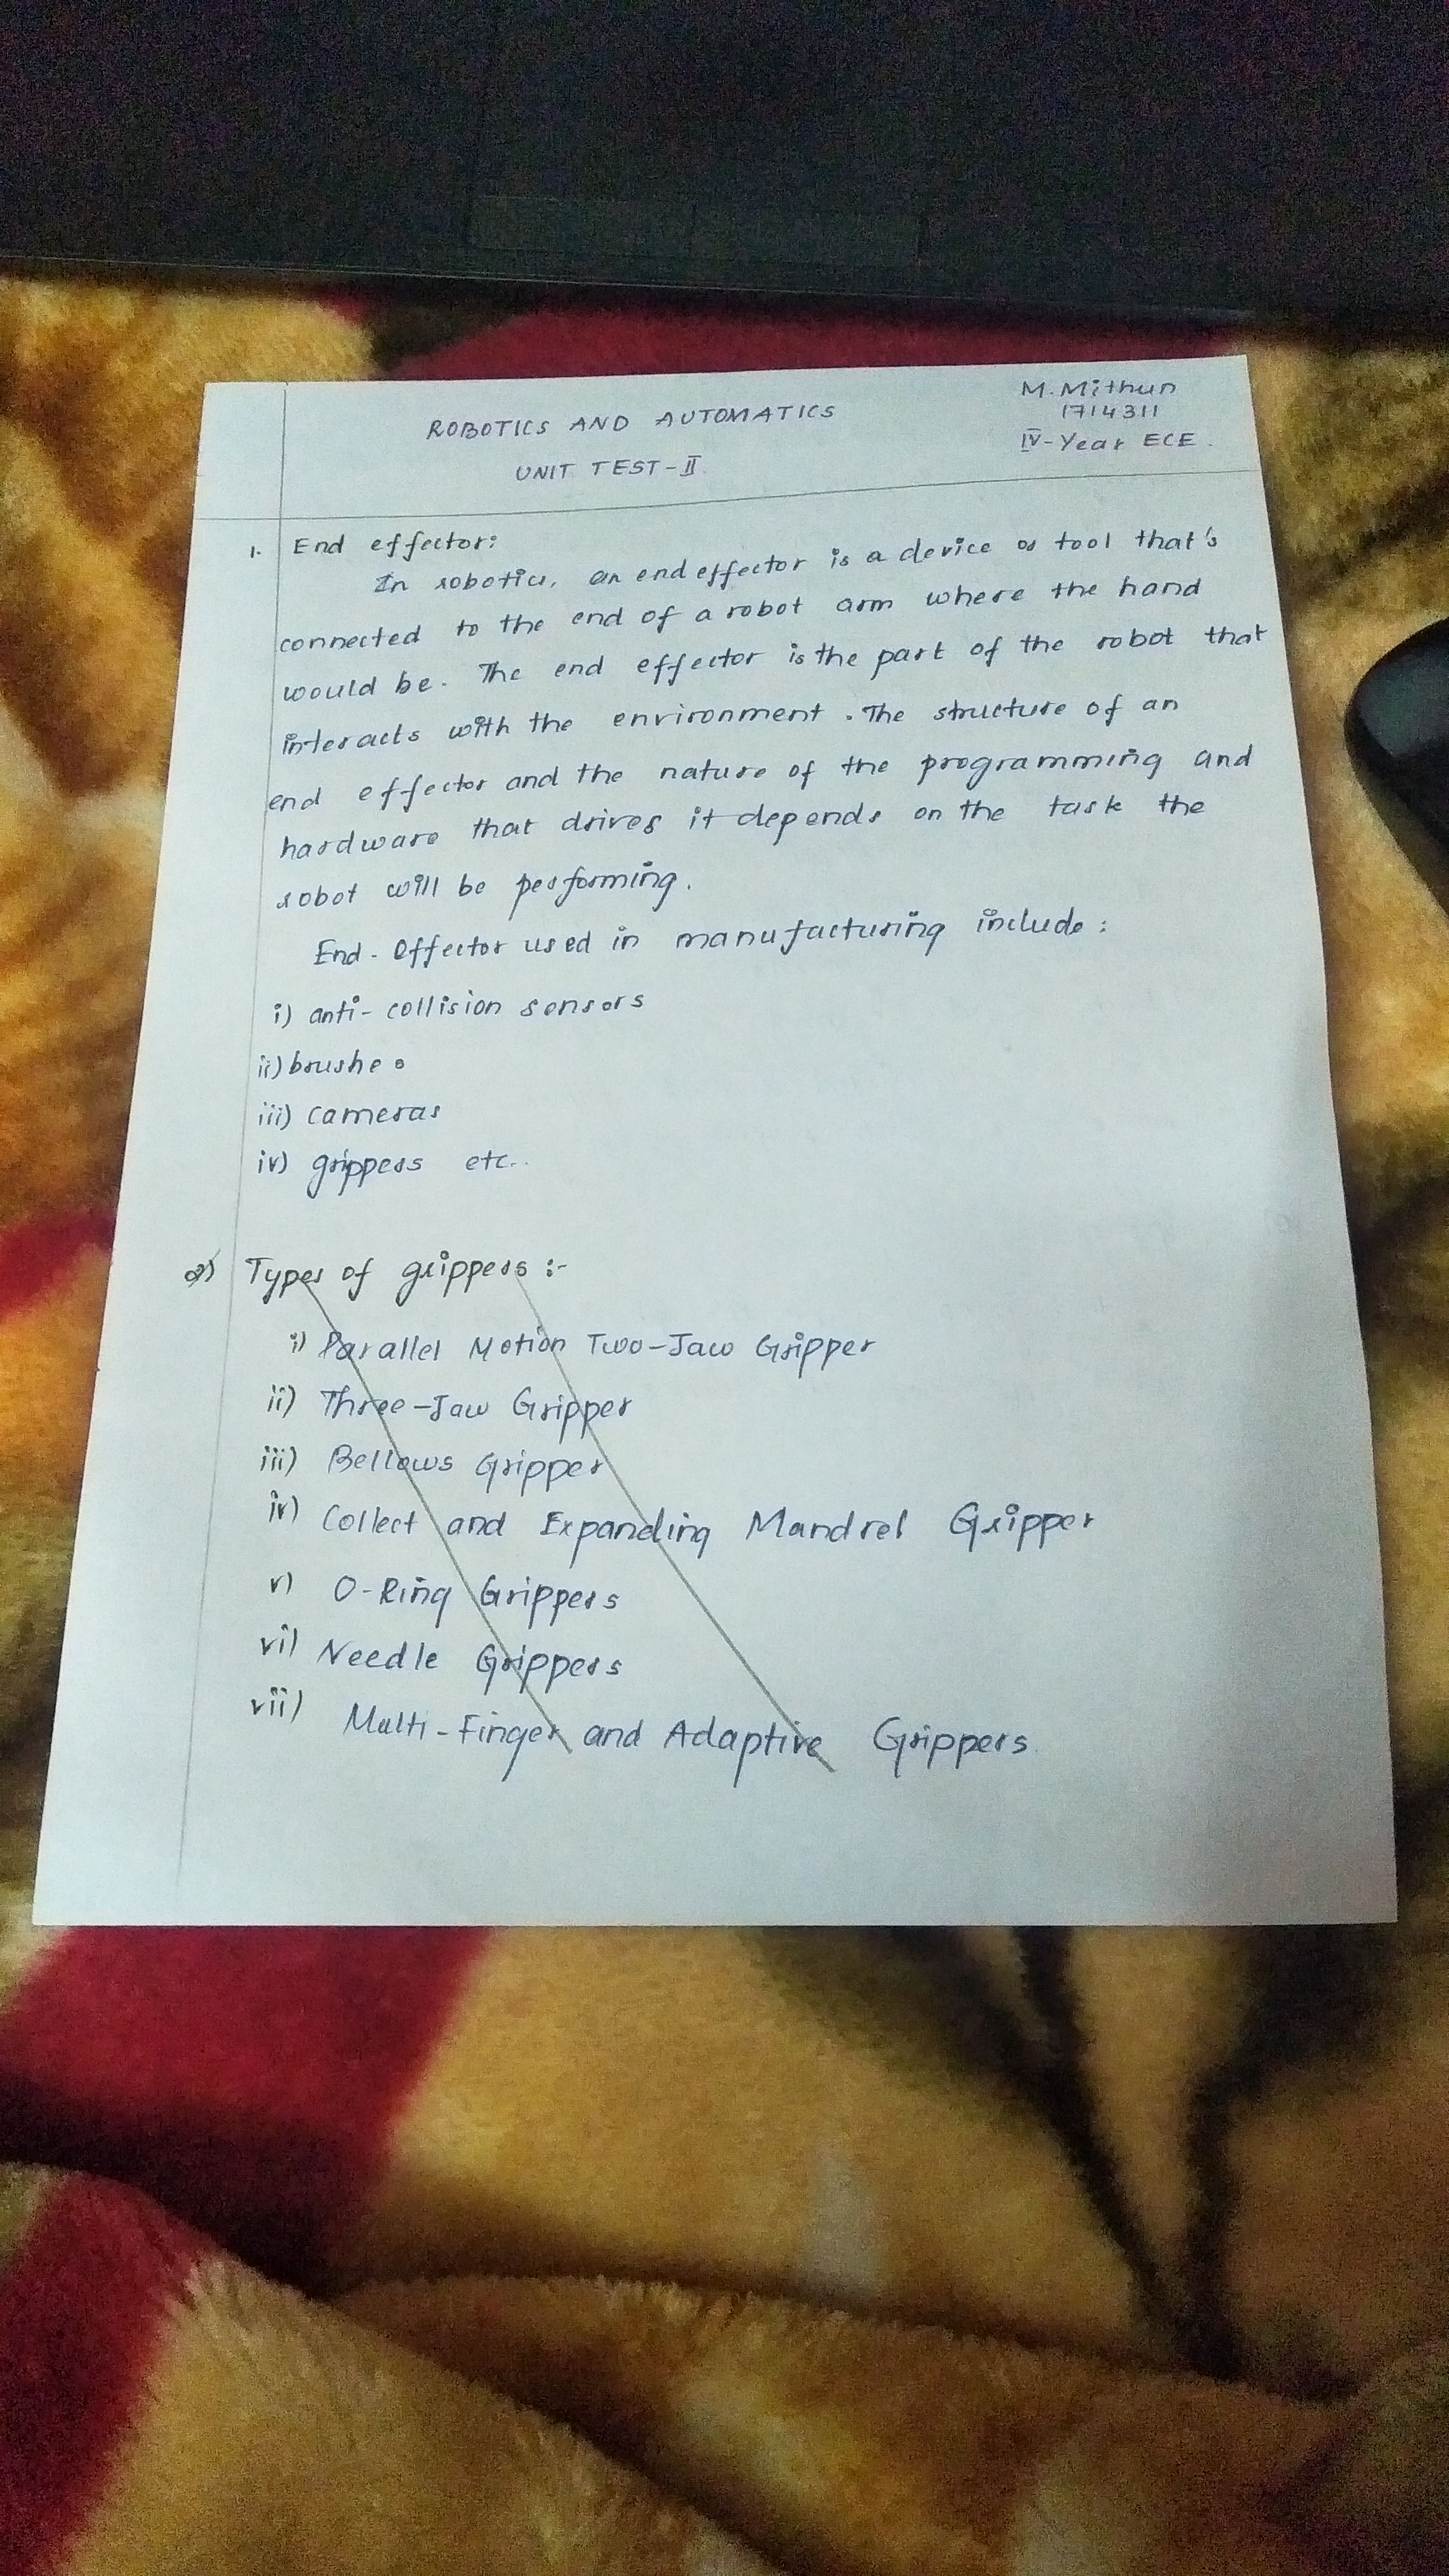 M. Mithun
ROBOTICS AND AUTOMATICS
1714311
IV-Year ECE.
UNIT TEST-II
1. End effector:
In robotics, an end effector is a device or tool that's
connected to the end of a robot arm where the hand
would be. The end effector is the part of the robot that
interacts with the environment. The structure of an
end effector and the nature of the programming and
hardware that drives it depends on the task the
robot will be performing.
End-Effector used in manufacturing include:
i) anti-collision sensors
ii) brushes
iii) cameras
iv) grippers etc..
2) Types of grippers :-
i) Parallel Motion Two-Jaw Gripper
ii) Three-Jaw Gripper
iii) Bellows Gripper
iv) Collect and Expanding Mandrel Gripper
v) O-Ring Grippers
vi) Needle Grippers
vii) Multi-Finger and Adaptive Grippers.